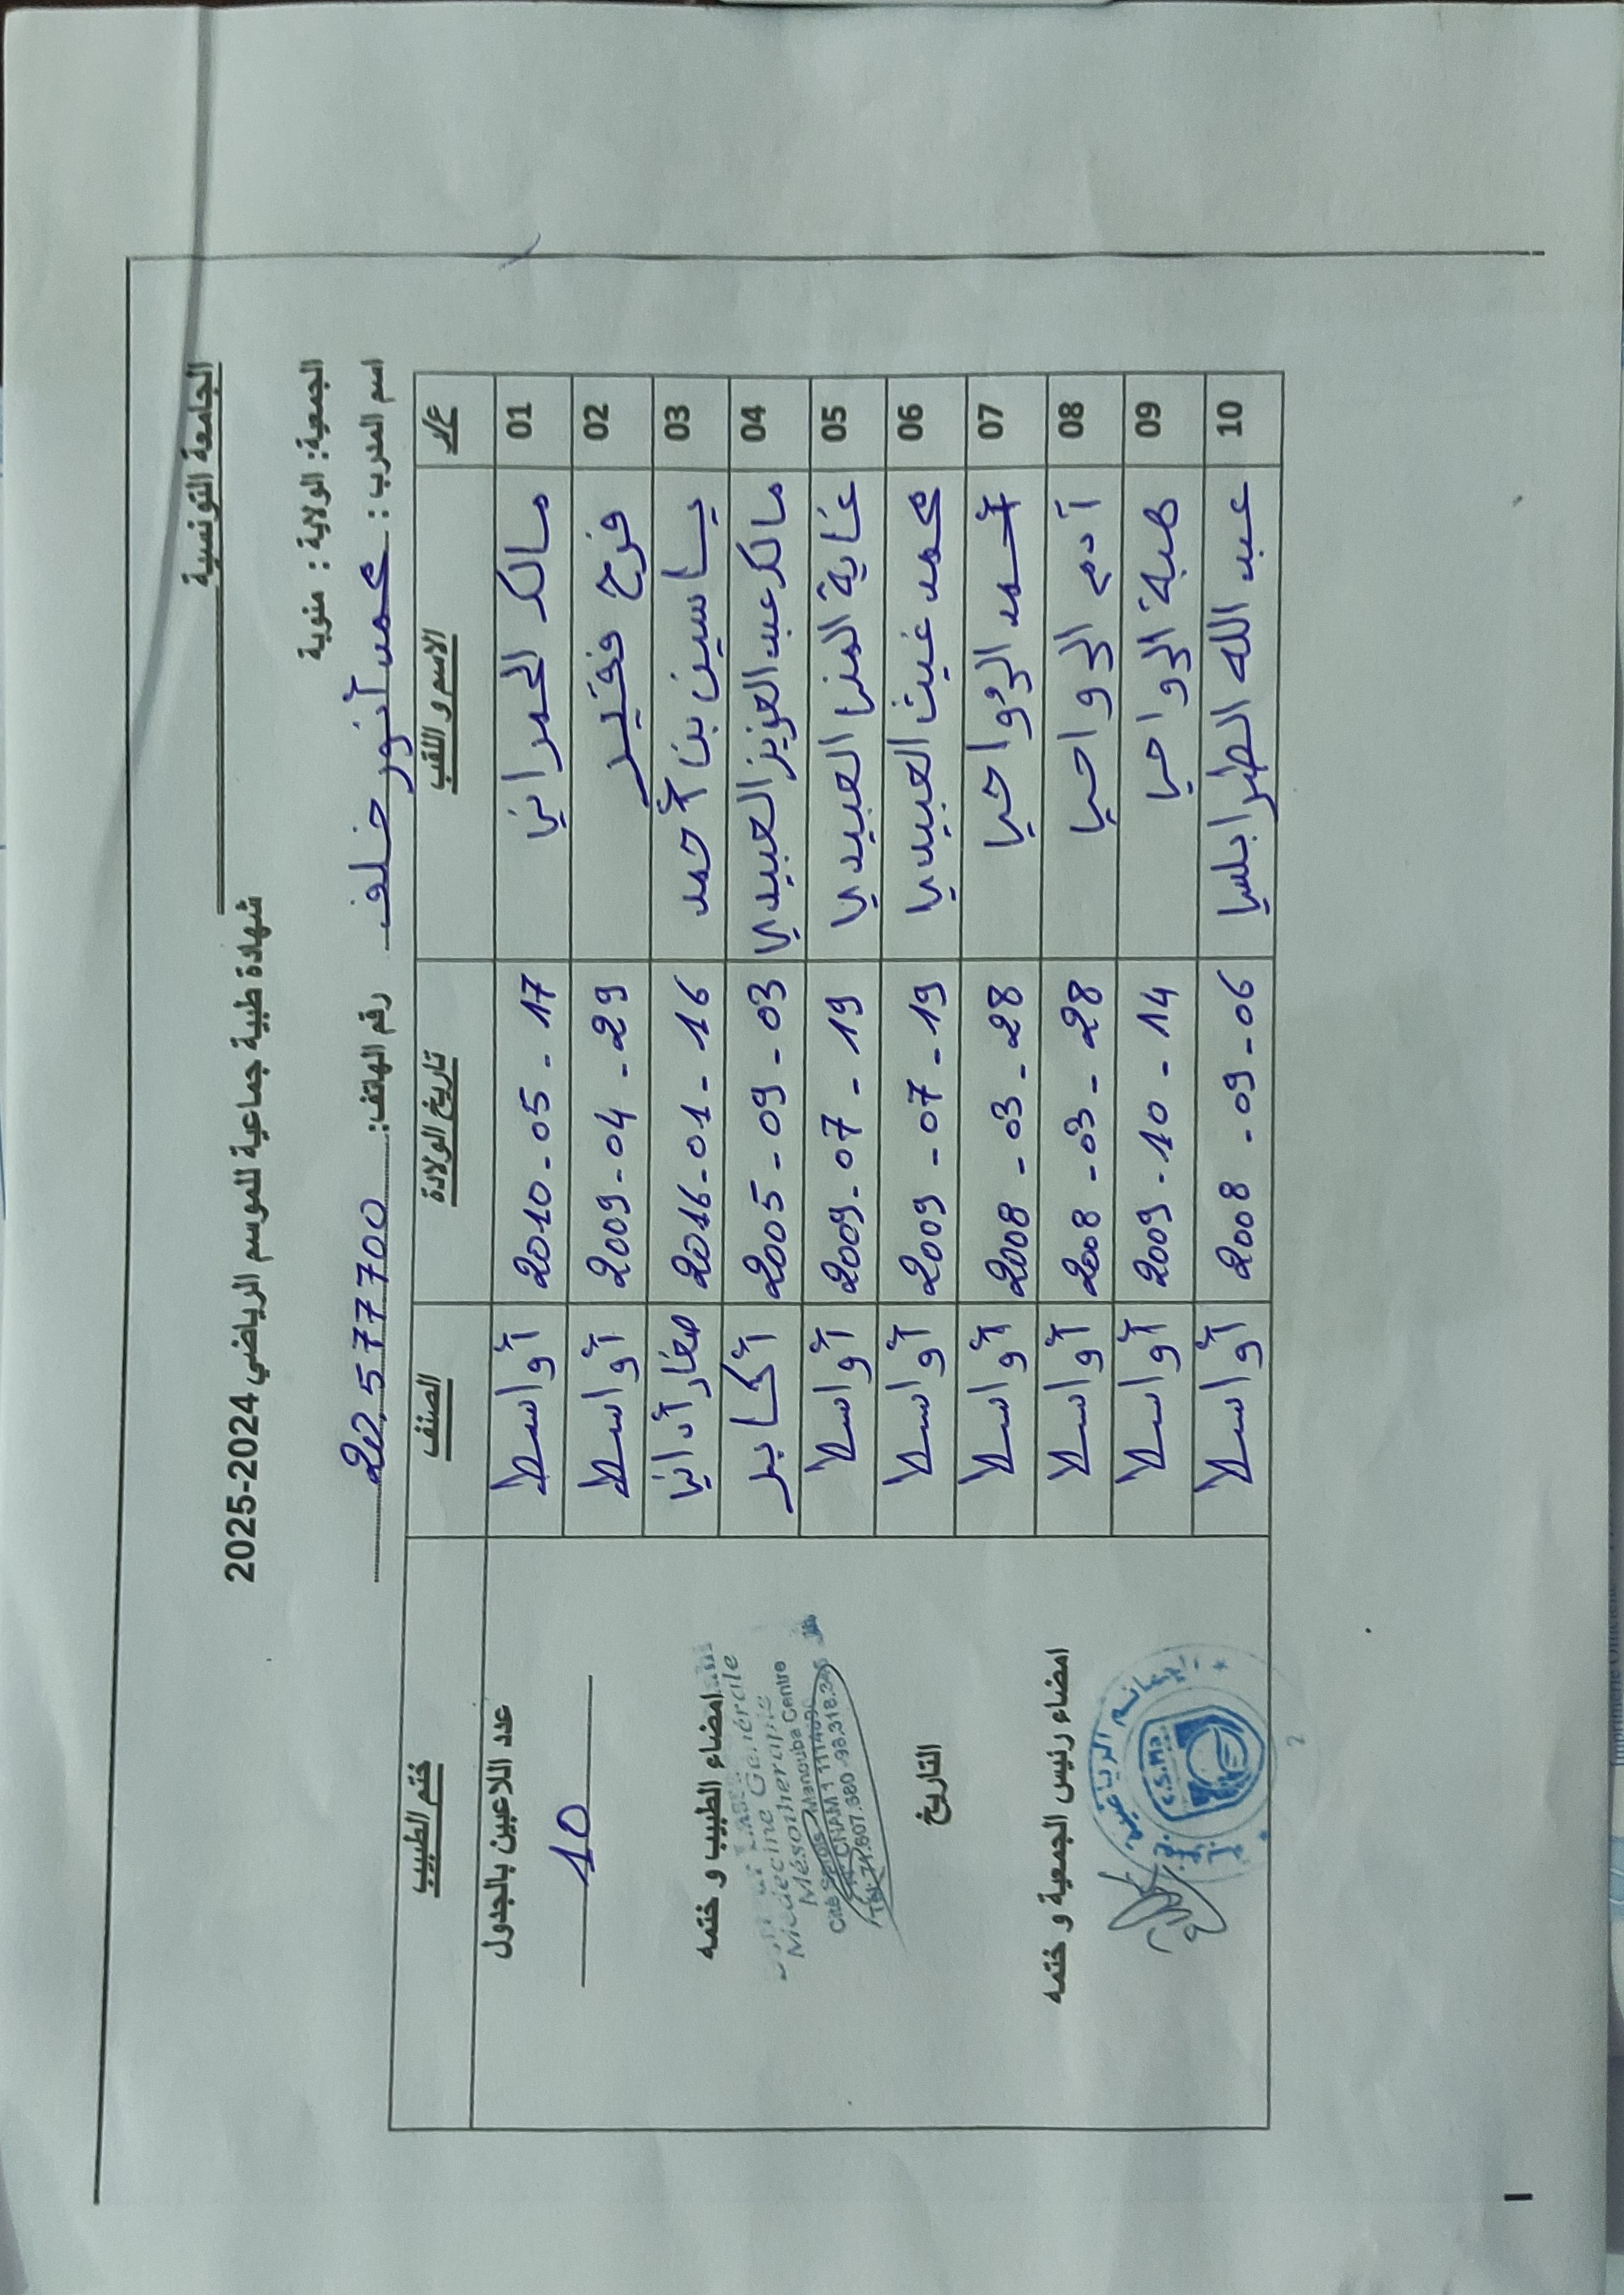 الجامعة التونسية
شهادة طبية جماعية للموسم الرياضي 2024-2025
الجمعية: الولاية : منوبة
اسم المدرب : محمد أنور خلف رقم الهاتف: 20.577700
ع/ر الاسم و اللقب تاريخ الولادة الصنف ختم الطبيب
01 مالك الحمراني 2010-05-17 أواسط
02 فرح فقير 2009-04-29 أواسط
03 ياسين بن أحمد 2016-01-16 صغار أداني
04 مالك عبد العزيز العبيدي 2005-09-03 أكابر
05 غاية المنى العبيدي 2009-07-19 أواسط
06 محمد غيث العبيدي 2009-07-19 أواسط
07 أحمد الرواحي 2008-03-28 أواسط
08 آدم الرواحي 2008-03-28 أواسط
09 هبة الرواحي 2009-10-14 أواسط
10 عبد الله الطرابلسي 2008-09-06 أواسط
عدد اللاعبين بالجدول
10
امضاء الطبيب و ختمه
Médecine Générale
Mésothérapie
Manouba Centre
CNAM
التاريخ
امضاء رئيس الجمعية و ختمه
C.S.Ma